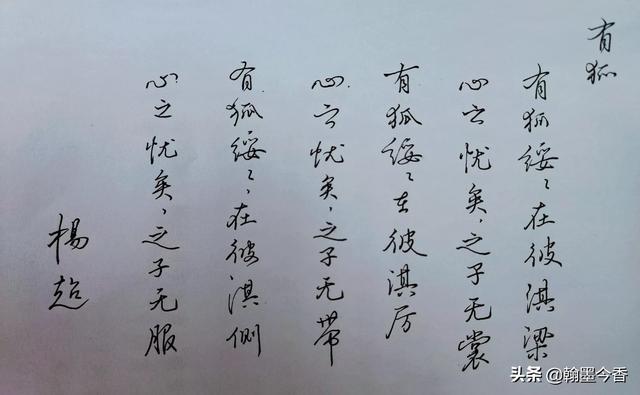 有狐
有狐绥々在彼淇梁
心之忧矣,之子无裳
有狐绥々在彼淇厉
心之忧矣,之子无带
有狐绥々,在彼淇侧
心之忧矣,之子无服
杨超
头条 @翰墨今香